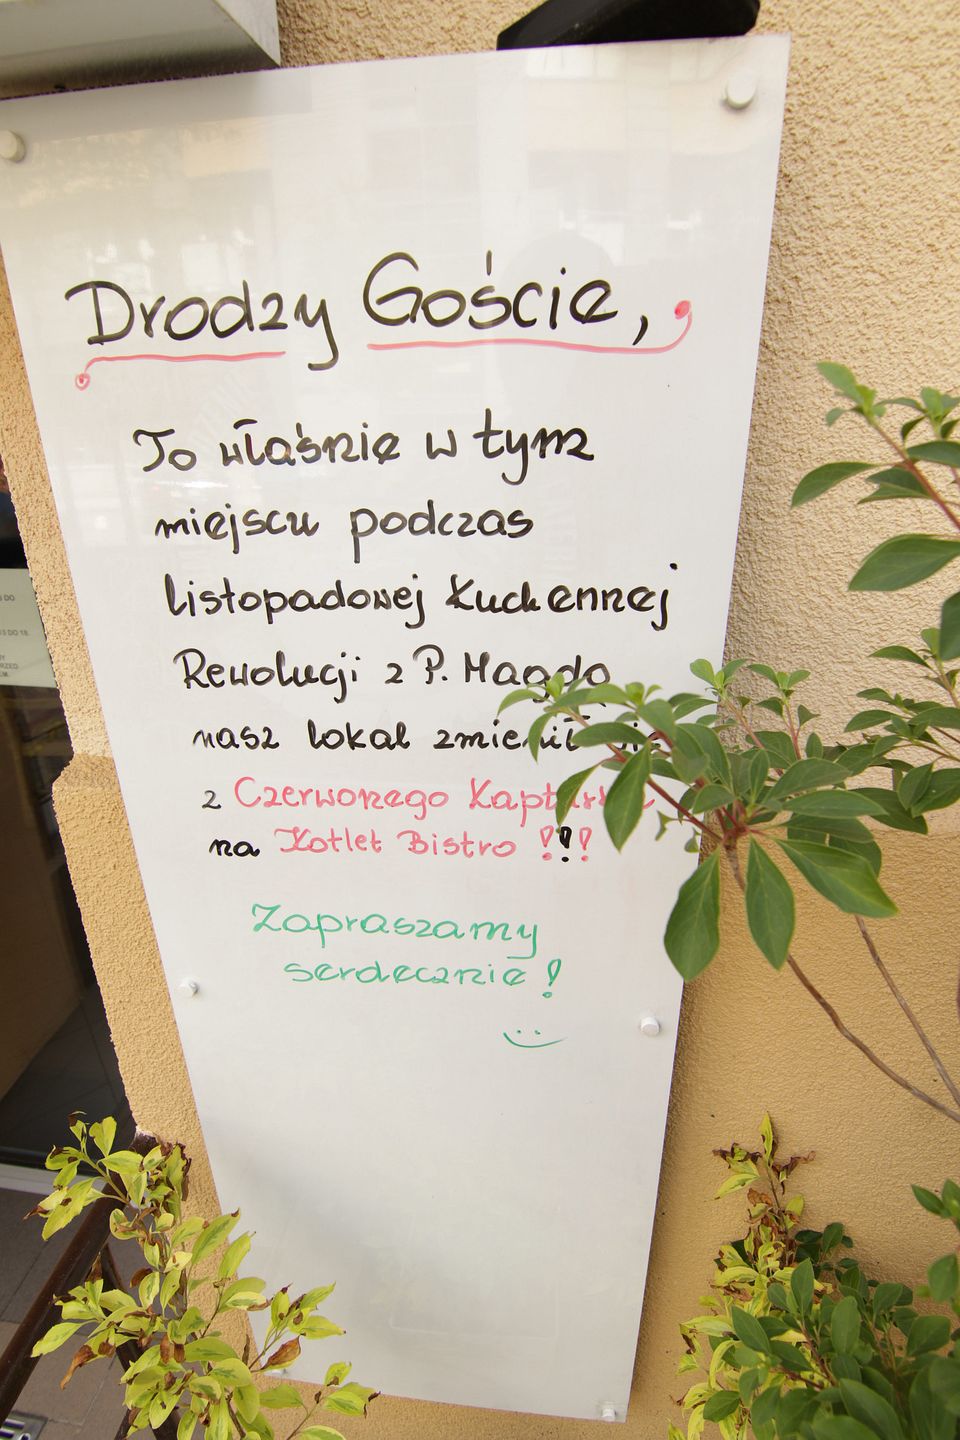 Drodzy Goście,
To właśnie w tym
miejscu podczas
listopadowej Kuchennej
Rewolucji z P. Magdą
nasz lokal zmienił się
z Czerwonego Kapturka
na Kotlet Bistro !!!
Zapraszamy
serdecznie !